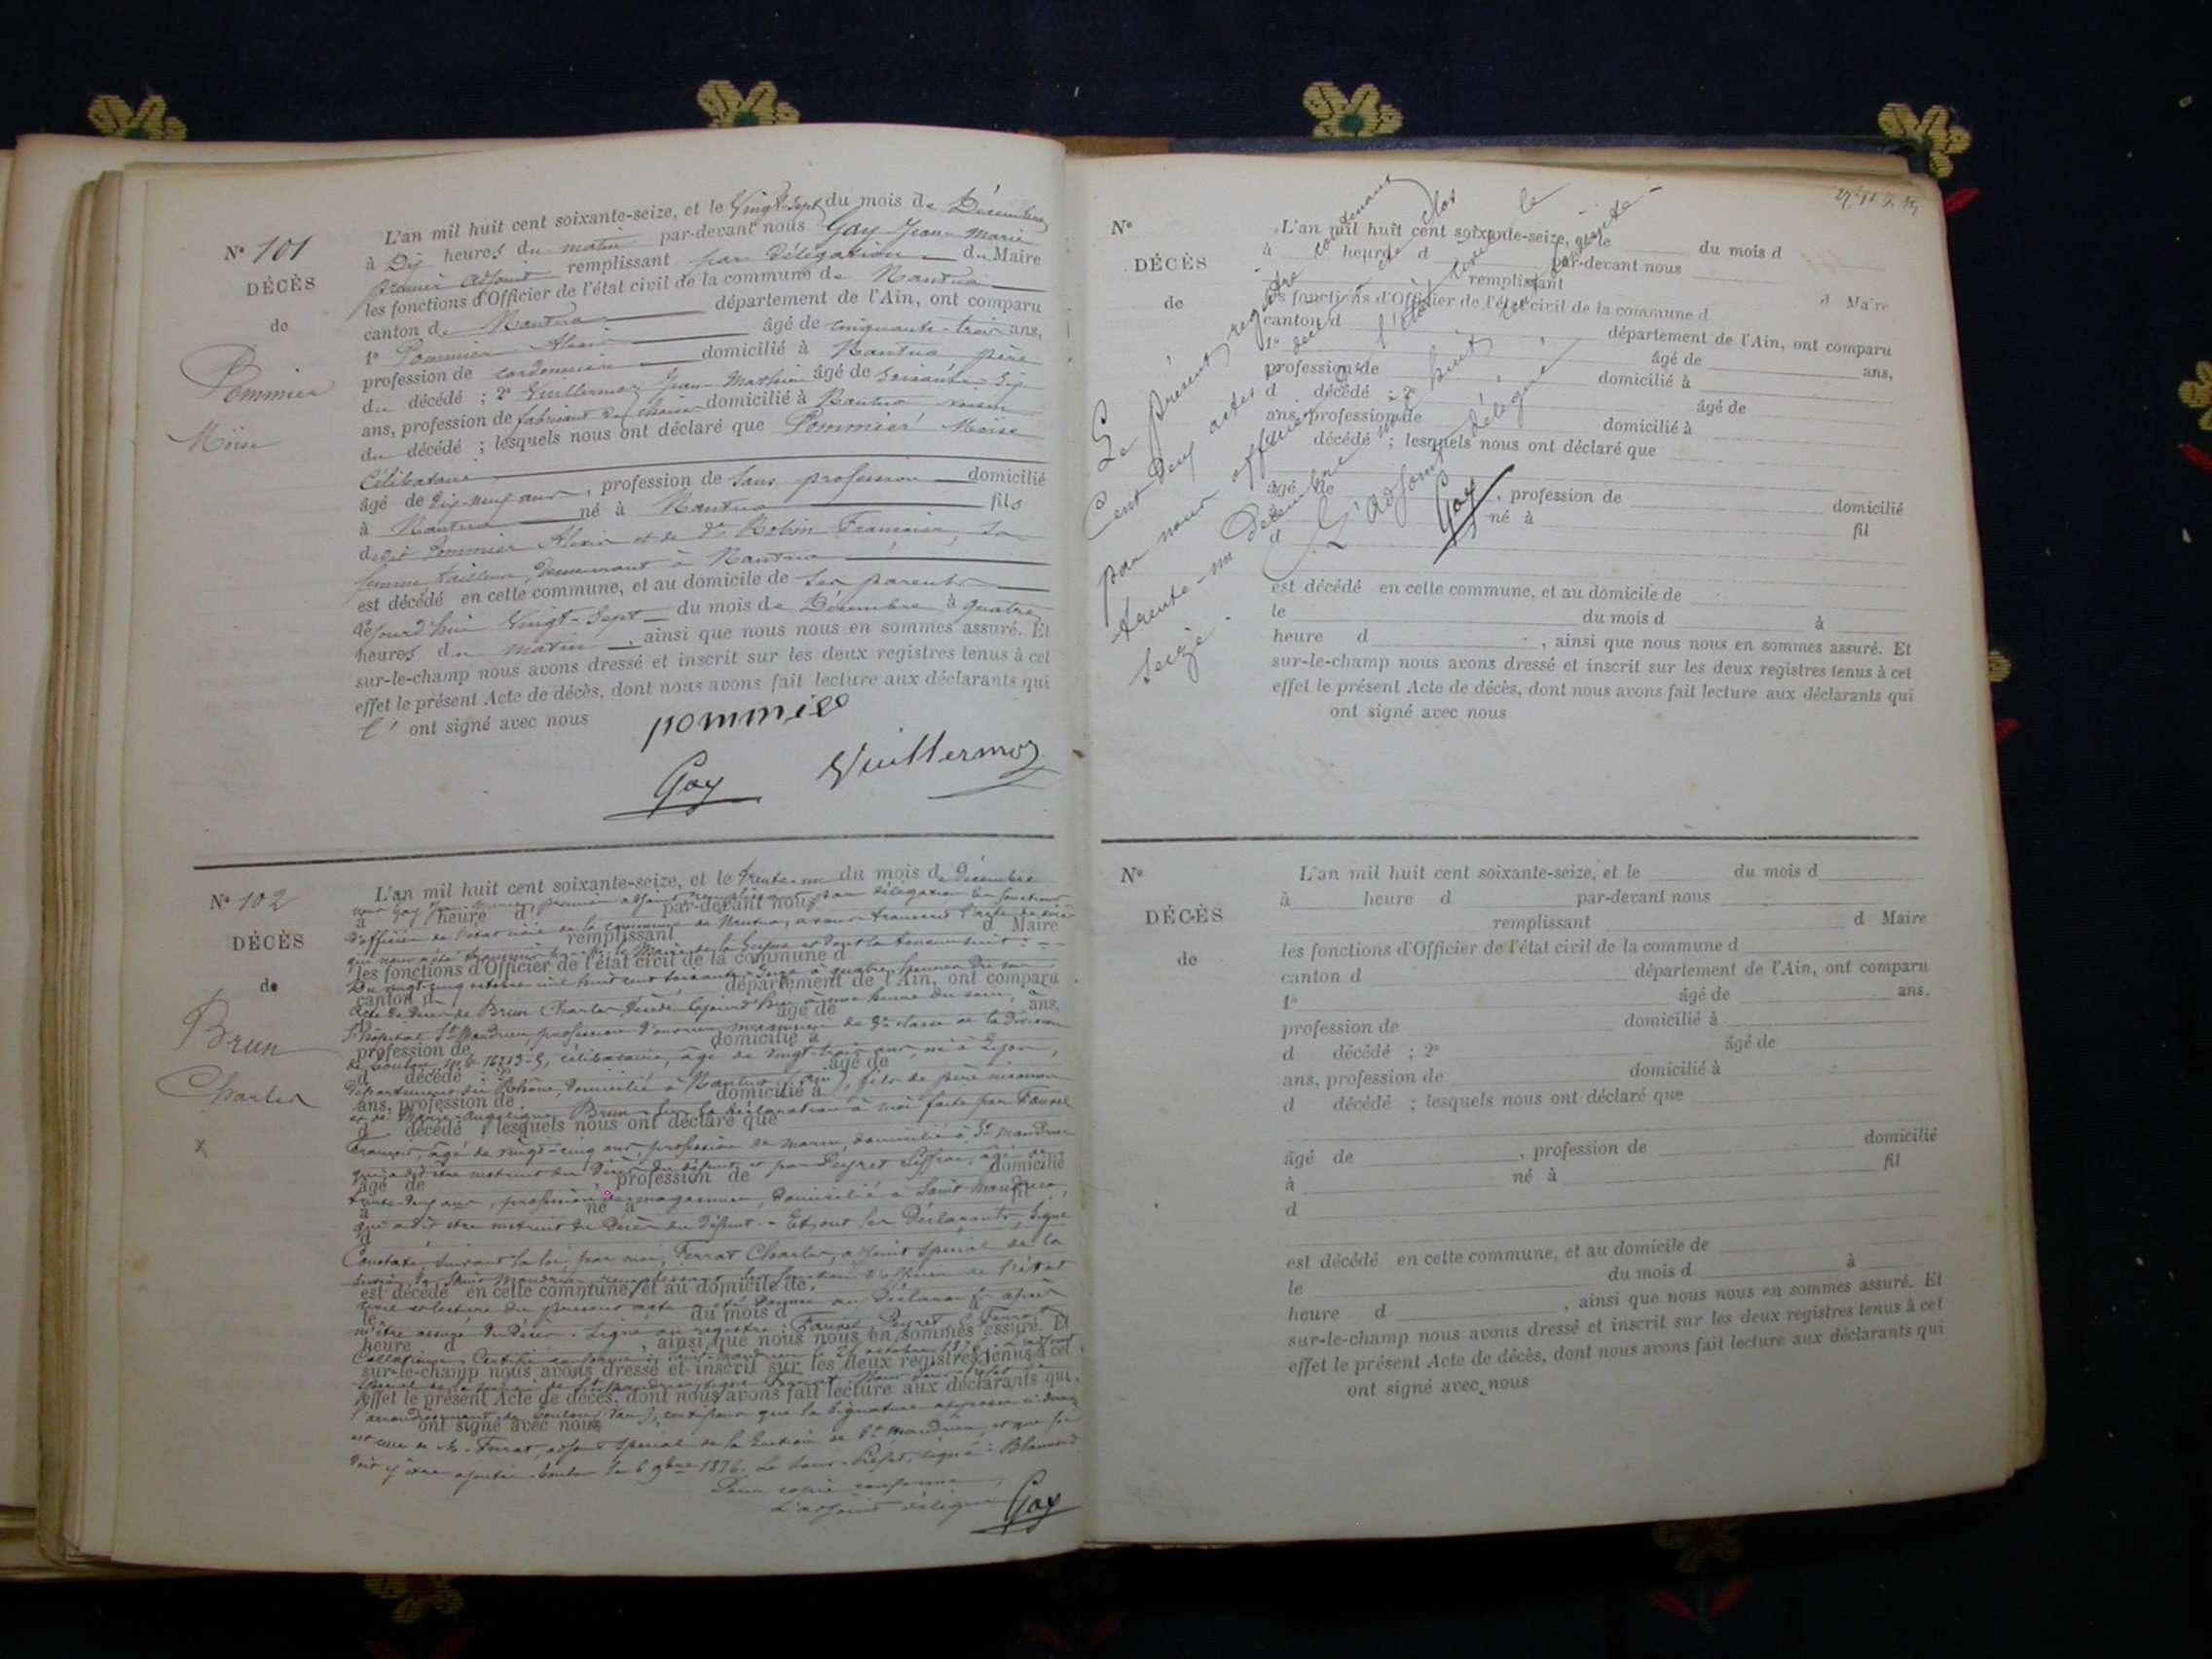 N° 101
DÉCÈS
de
Pommier
Moïse
L'an mil huit cent soixante-seize, et le Vingt-sept du mois de Décembre
à Dix heures du matin par-devant nous Gay Jean-Marie
premier adjoint remplissant par délégation du Maire
les fonctions d'Officier de l'état civil de la commune de Nantua
canton de Nantua département de l'Ain, ont comparu
1° Pommier Alexis âgé de cinquante-trois ans,
profession de cordonnier domicilié à Nantua, père
du décédé ; 2° Vuillermoz Jean-Mathieu âgé de soixante-six
ans, profession de fabricant de chaises domicilié à Nantua voisin
du décédé ; lesquels nous ont déclaré que Pommier Moïse
célibataire
âgé de dix-neuf ans, profession de sans profession domicilié
à Nantua né à Nantua fils
dudit Pommier Alexis et de de Robin Françoise, sa
femme tailleuse, demeurant à Nantua
est décédé en cette commune, et au domicile de ses parents
cejourd'hui Vingt-sept du mois de Décembre à quatre
heures du matin, ainsi que nous nous en sommes assuré. Et
sur-le-champ nous avons dressé et inscrit sur les deux registres tenus à cet
effet le présent Acte de décès, dont nous avons fait lecture aux déclarants qui
l' ont signé avec nous
pommier
Gay Vuillermoz
N° 102
DÉCÈS
de
Brun
Charles
x
L'an mil huit cent soixante-seize, et le trente-un du mois de Décembre
nous Gay Jean-Marie, premier adjoint remplissant par délégation les fonctions
à heure d par-devant nous
d'officier de l'état civil de la commune de Nantua, avons transcrit l'acte de décès
remplissant d Maire
qui nous a été transmis par le Maire de la Seyne et dont la teneur suit :
les fonctions d'Officier de l'état civil de la commune d
Du vingt-cinq octobre mil huit cent soixante-seize à quatre heures du soir
canton d département de l'Ain, ont comparu
acte de décès de Brun Charles, décédé cejourd'hui à une heure du soir,
âgé de ans,
l'hôpital St Mandrier, profession d'ouvrier mécanicien de 3e classe de la division
profession de domicilié à
de Toulon, célibataire, âgé de vingt-trois ans, né à Lyon,
d décédé ; 2° âgé de
département du Rhône, domicilié à Nantua (Ain), fils de père inconnu
ans, profession de domicilié à
et de Marie-Angélique Brun. Sur la déclaration à moi faite par Fauxel
d décédé ; lesquels nous ont déclaré que
François, âgé de vingt-cinq ans, profession de marin domicilié à St Mandrier
qui a dit être instruit du décès du défunt, et par Peyret
âgé de profession de domicilié
trente-deux ans, profession de magasinier, domicilié à Saint Mandrier
à né à fil
qui a dit être instruit du décès du défunt. - Et ont les Déclarants signé
d
Constaté suivant la loi, par moi, Ferrat Charles, adjoint spécial de la
section de Saint Mandrier remplissant les fonctions d'officier de l'état
est décédé en cette commune, et au domicile de
civil et lecture du présent acte a été donnée aux déclarants après
le du mois d à
m'être assuré du décès. Signé au registre : Fauxel, Peyret, C. Ferrat
heure d , ainsi que nous nous en sommes assuré. Et
sur-le-champ nous avons dressé et inscrit sur les deux registres tenus à cet
effet le présent Acte de décès, dont nous avons fait lecture aux déclarants qui
l'arrondissement de Toulon (Var), certifions que la signature apposée ci-dessus
ont signé avec nous
est celle de M. Ferrat, adjoint spécial de la section de St Mandrier, et que foi
doit y être ajoutée. Toulon le 6 9bre 1876. Le Sous-Préfet, signé :
Pour copie conforme,
L'adjoint délégué Gay
N°
DÉCÈS
de
L'an mil huit cent soixante-seize, et le du mois d
à heure d par-devant nous
remplissant d Maire
les fonctions d'Officier de l'état civil de la commune d
canton d département de l'Ain, ont comparu
1° âgé de ans,
profession de domicilié à
d décédé ; 2° âgé de
ans, profession de domicilié à
d décédé ; lesquels nous ont déclaré que
âgé de , profession de domicilié
à né à fil
d
est décédé en cette commune, et au domicile de
le du mois d à
heure d , ainsi que nous nous en sommes assuré. Et
sur-le-champ nous avons dressé et inscrit sur les deux registres tenus à cet
effet le présent Acte de décès, dont nous avons fait lecture aux déclarants qui
ont signé avec nous
Le présent registre contenant
Cent-deux actes de décès a été clos
par nous officier de l'état civil le
trente-un Décembre mil huit cent soixante-
seize.
L'adjoint délégué,
Gay
N°
DÉCÈS
de
L'an mil huit cent soixante-seize, et le du mois d
à heure d par-devant nous
remplissant d Maire
les fonctions d'Officier de l'état civil de la commune d
canton d département de l'Ain, ont comparu
1° âgé de ans,
profession de domicilié à
d décédé ; 2° âgé de
ans, profession de domicilié à
d décédé ; lesquels nous ont déclaré que
âgé de , profession de domicilié
à né à fil
d
est décédé en cette commune, et au domicile de
le du mois d à
heure d , ainsi que nous nous en sommes assuré. Et
sur-le-champ nous avons dressé et inscrit sur les deux registres tenus à cet
effet le présent Acte de décès, dont nous avons fait lecture aux déclarants qui
ont signé avec nous